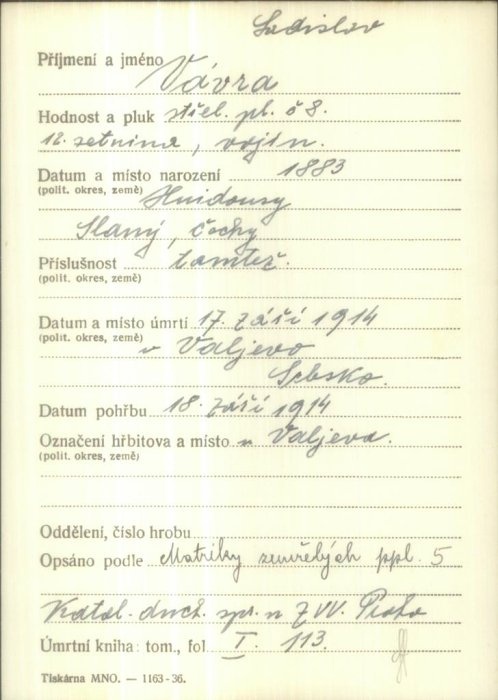 Ladislav
Příjmení a jméno Vávra
Hodnost a pluk střel. pl. č 8.
12. setnina, vojín.
Datum a místo narození 1883
(polit. okres, země) Hnidousy
Slaný, Čechy
Příslušnost tamtéž.
(polit. okres, země)
Datum a místo úmrtí 17. září 1914
(polit. okres, země) v Valjevo
Srbsko.
Datum pohřbu 18. září 1914
Označení hřbitova a místo u Valjeva.
(polit. okres, země)
Oddělení, číslo hrobu
Opsáno podle Matriky zemřelých ppl. 5
Katol. duch. spr. u ZVV. Praha
Úmrtní kniha: tom., fol I. 113.
Tiskárna MNO. — 1163-36.